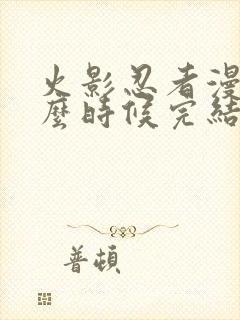 火影忍者漫
麼時候完結
普頓